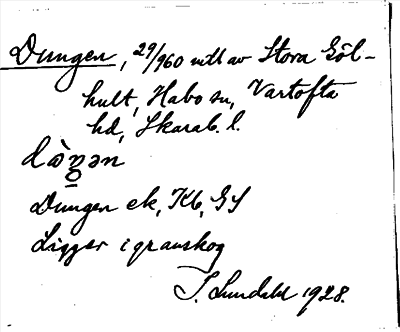 Dungen, 29/960 mtl av Stora Göl-
hult, Habo sn, Vartofta
hd, Skarab. l.
Dungen ek, Kb, GS
Ligger i granskog
S. Lundahl 1928.